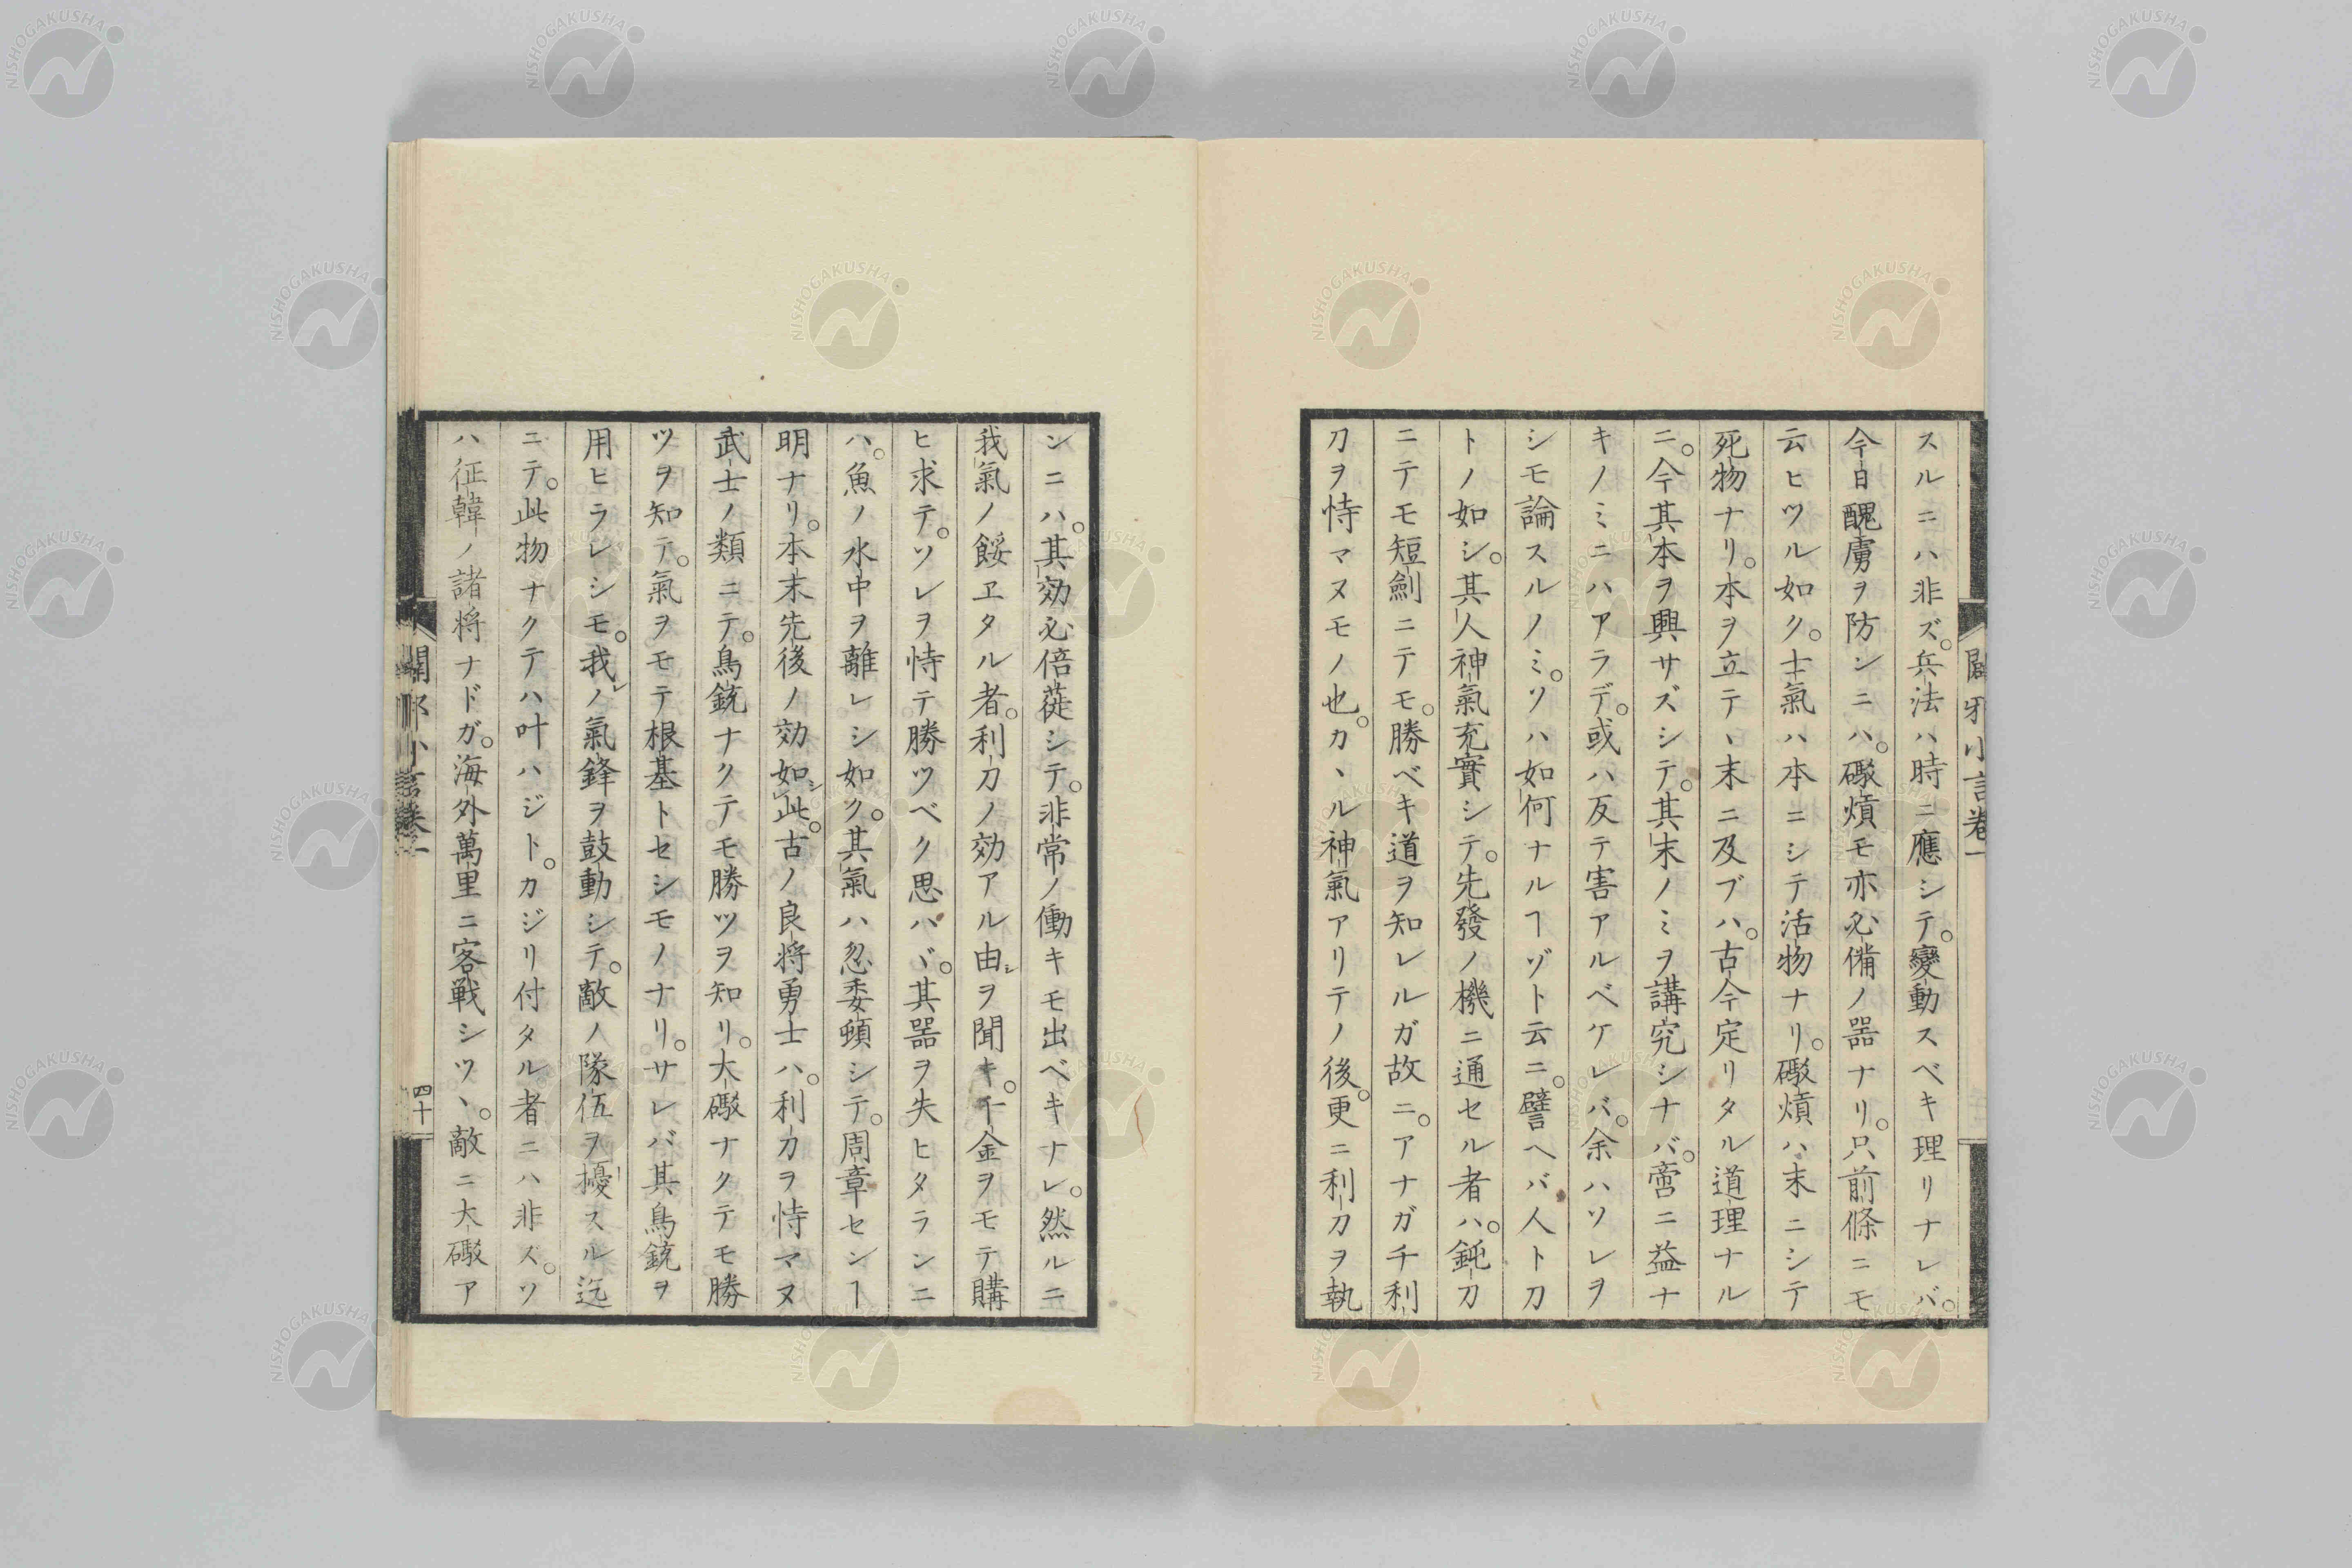 スルニハ非ズ。兵法ハ時ニ應シテ。變動スベキ理リナレバ。
今日醜虜ヲ防ンニハ。礮熕モ亦必備ノ器ナリ。只前條ニモ
云ヒツル如ク。士氣ハ本ニシテ活物ナリ。礮熕ハ末ニシテ
死物ナリ。本ヲ立テヽ末ニ及ブハ。古今定リタル道理ナル
ニ。今其本ヲ興サズシテ。其末ノミヲ講究シナバ。啻ニ益ナ
キノミニハアラデ。或ハ反テ害アルベケレバ。余ハソレヲ
シモ論スルノミ。ソハ如何ナルヿゾト云ニ。譬ヘバ人ト刀
トノ如シ。其人神氣充實シテ。先發ノ機ニ通セル者ハ。鈍刀
ニテモ短劍ニテモ。勝ベキ道ヲ知レルガ故ニ。アナガチ利
刀ヲ恃マヌモノ也。カヽル神氣アリテノ後。更ニ利刀ヲ執
ンニハ。其効必倍蓰シテ。非常ノ働キモ出ベキナレ。然ルニ
我氣ノ餒ヱタル者。利刀ノ効アル由ヲ聞キ。千金ヲモテ購
ヒ求テ。ソレヲ恃テ勝ツベク思ハヾ。其器ヲ失ヒタランニ
ハ。魚ノ水中ヲ離レシ如ク。其氣ハ忽委頓シテ。周章センヿ
明ナリ。本末先後ノ効如シ此。古ノ良將勇士ハ。利刀ヲ恃マヌ
武士ノ類ニテ。鳥銃ナクテモ勝ツヲ知リ。大礮ナクテモ勝
ツヲ知テ。氣ヲモテ根基トセシモノナリ。サレバ其鳥銃ヲ
用ヒラレシモ。我レノ氣鋒ヲ鼓動シテ。敵ノ隊伍ヲ擾スル迄
ニテ。此物ナクテハ叶ハジト。カジリ付タル者ニハ非ズ。ソ
ハ征韓ノ諸將ナドガ。海外萬里ニ客戰シツヽ。敵ニ大礮ア
闢邪小言卷一
四十